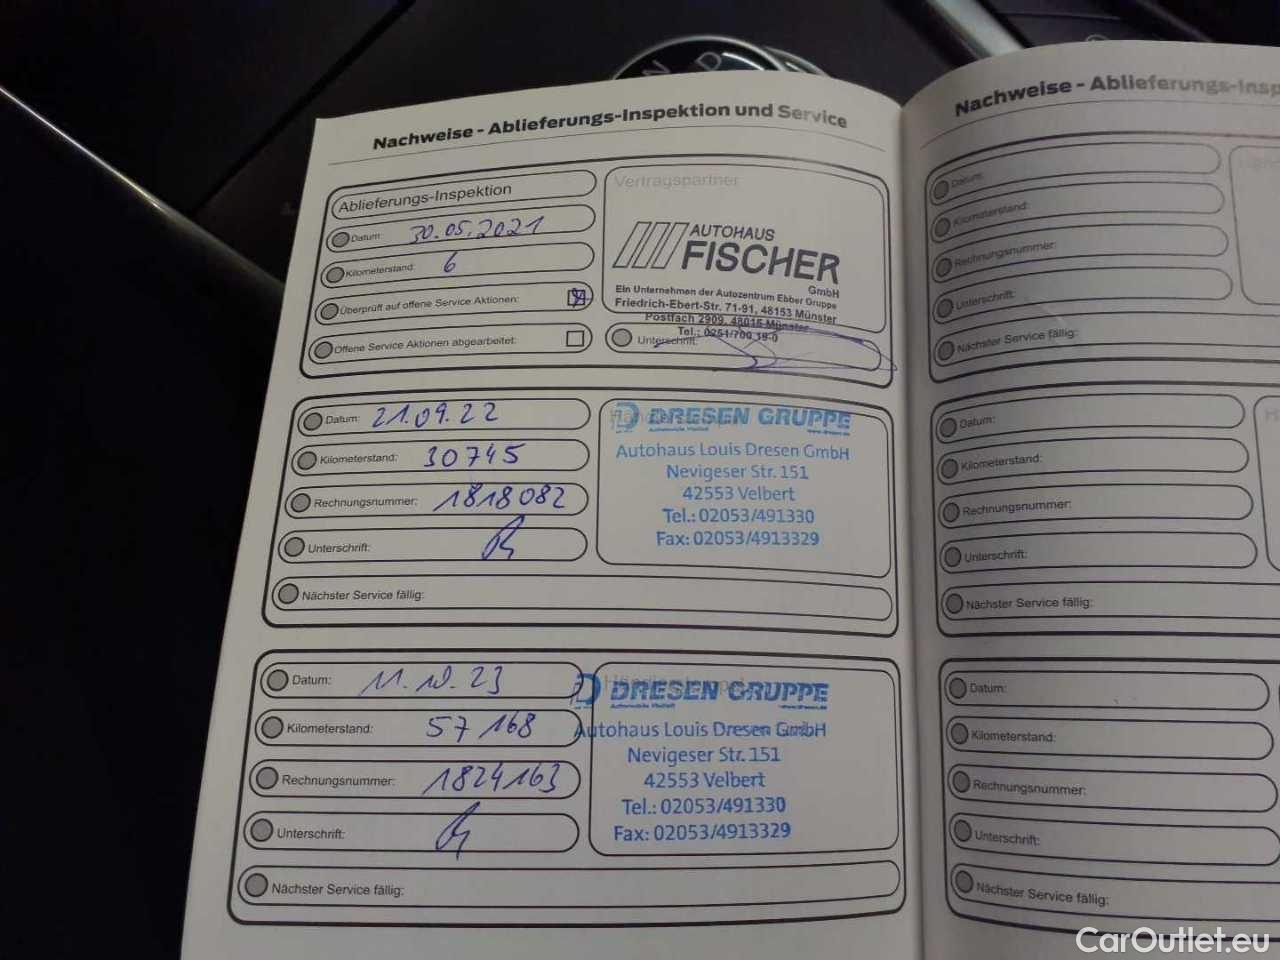 N D
Nachweise - Ablieferungs-Inspektion und Service
Ablieferungs-Inspektion
Datum: 30.05.2021
Kilometerstand: 6
Überprüft auf offene Service Aktionen:
Offene Service Aktionen abgearbeitet:
Vertragspartner
AUTOHAUS
FISCHER
GmbH
Ein Unternehmen der Autozentrum Ebber Gruppe
Friedrich-Ebert-Str. 71-91, 48153 Münster
Postfach 2909, 48015 Münster
Tel.: 0251/700 19-0
Unterschrift:
Datum: 21.09.22
Kilometerstand: 30745
Rechnungsnummer: 1818082
Unterschrift:
Nächster Service fällig:
DRESEN GRUPPE
Autohaus Louis Dresen GmbH
Nevigeser Str. 151
42553 Velbert
Tel.: 02053/491330
Fax: 02053/4913329
Datum: 11.10.23
Kilometerstand: 57168
Rechnungsnummer: 1824163
Unterschrift:
Nächster Service fällig:
DRESEN GRUPPE
Autohaus Louis Dresen GmbH
Nevigeser Str. 151
42553 Velbert
Tel.: 02053/491330
Fax: 02053/4913329
Nachweise - Ablieferungs-Insp
Datum:
Kilometerstand:
Rechnungsnummer:
Unterschrift:
Nächster Service fällig:
Datum:
Kilometerstand:
Rechnungsnummer:
Unterschrift:
Nächster Service fällig:
Datum:
Kilometerstand:
Rechnungsnummer:
Unterschrift:
Nächster Service fällig:
CarOutlet.eu